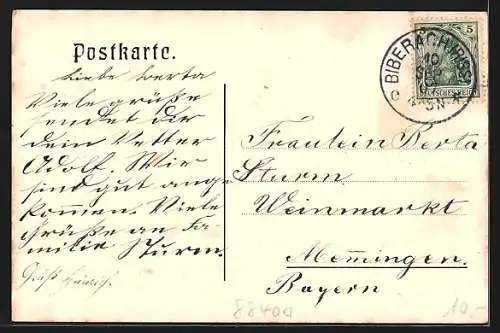 Postkarte.
Liebe Berta
Viele grüße
sendet dir
dein Vetter
Adolf. Wir
sind gut ange
kommen. Viele
Grüße an Fa-
milie Sturm.
Gruß Heinrich.
5
BIBERACH (RISS)
10
DEUTSCHES REICH
Fräulein Berta
Sturm
Weinmarkt
Memmingen.
Bayern
8840a
10.-